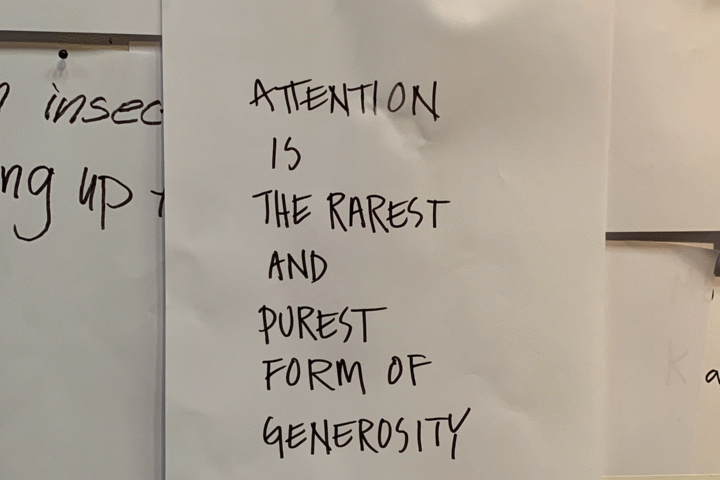 insec
ng up
ATTENTION
IS
THE RAREST
AND
PUREST
FORM OF
GENEROSITY